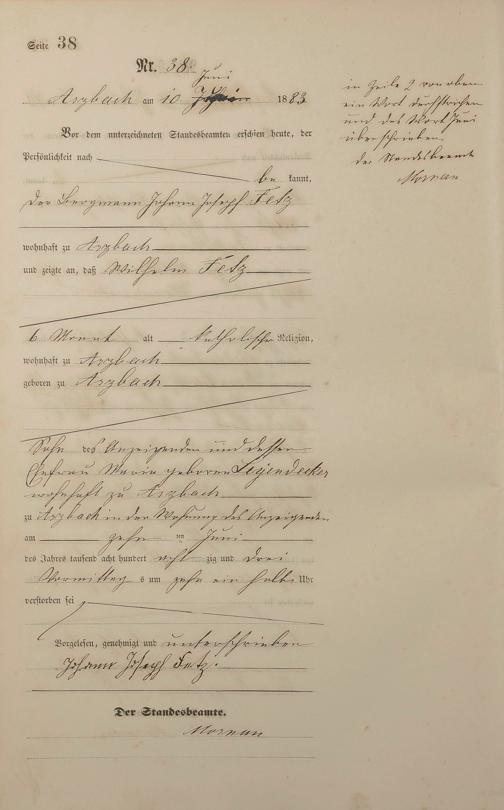 Seite 38
Nr. 38.
Juni
Arzbach am 10 1883
Vor dem unterzeichneten Standesbeamten erschien heute, der
Persönlichkeit nach
be kannt,
der Bergmann Johann Joseph Fetz
wohnhaft zu Arzbach
und zeigte an, daß Wilhelm Fetz
6 Monat alt katholischer Religion,
wohnhaft zu Arzbach
geboren zu Arzbach
Sohn des Anzeigenden und dessen
Ehefrau Maria geborenen Leyendecker
wohnhaft zu Arzbach
zu Arzbach in der Wohnung des Anzeigenden
am zehn ten Juni
des Jahres tausend acht hundert acht zig und drei
Vormittag s um zehn ein halb Uhr
verstorben sei
Vorgelesen, genehmigt und unterschrieben
Johann Joseph Fetz.
Der Standesbeamte.
in Zeile 2 von oben
ein Wort durchstrichen
und das Wort Juni
überschrieben.
der Standesbeamte